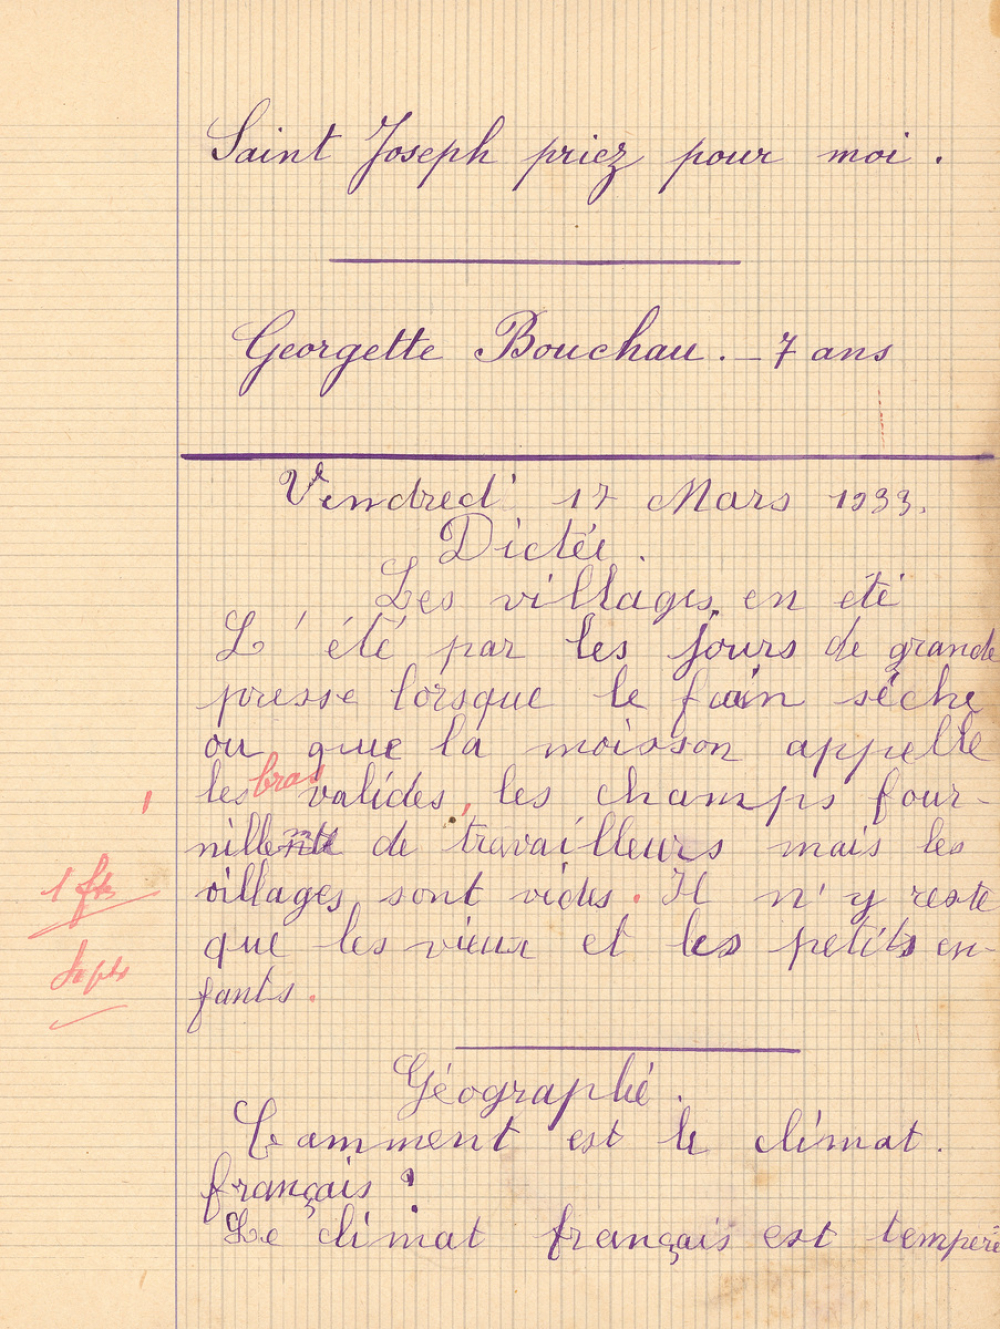 Saint Joseph priez pour moi.
Georgette Bouchau. - 7 ans
Vendredi 17 Mars 1933.
Dictée.
Les villages en été
L'été par les jours de grande
presse lorsque le foin sèche
ou que la moisson appelle
les bras valides, les champs four-
millent de travailleurs mais les
villages sont vides. Il n'y reste
que les vieux et les petits en-
fants.
1 fte
Géographie.
Comment est le climat.
français ?
Le climat français est tempéré